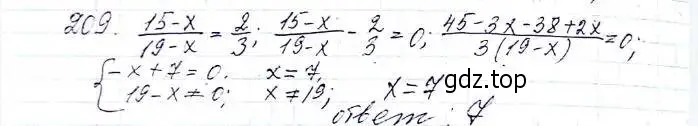 209. (15-x)/(19-x) = 2/3; (15-x)/(19-x) - 2/3 = 0; (45-3x-38+2x)/(3(19-x)) = 0;
{ -x+7=0. x=7, x=7
19-x≠0; x≠19;
gdz.top
ответ: 7